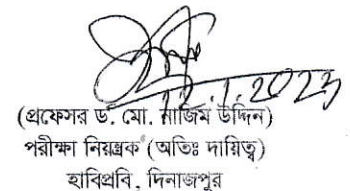 12.1.2023
(প্রফেসর ড. মো. নাজিম উদ্দিন)
পরীক্ষা নিয়ন্ত্রক (অতিঃ দায়িত্ব)
হাবিপ্রবি, দিনাজপুর